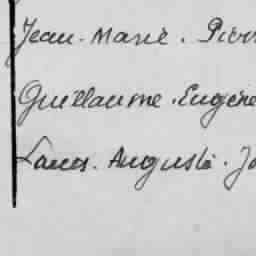 Jean. Marie. Pierr
Guillaume. Eugène
Auguste. Jo